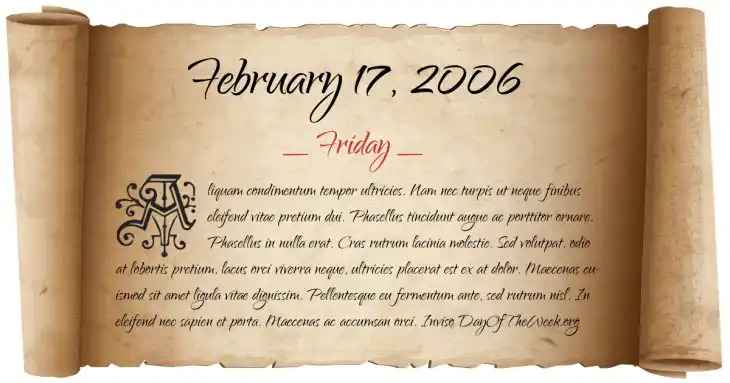 February 17, 2006
_ Friday _
Aliquam condimentum tempor ultricies. Nam nec turpis ut neque finibus
eleifend vitae pretium dui. Phasellus tincidunt augue ac porttitor ornare.
Phasellus in nulla erat. Cras rutrum lacinia molestie. Sed volutpat, odio
at lobortis pretium, lacus orci viverra neque, ultricies placerat est ex at dolor. Maecenas eu-
ismod sit amet ligula vitae dignissim. Pellentesque eu fermentum ante, sed rutrum nisl. In
eleifend nec sapien et porta. Maecenas ac accumsan orci. Inviso DayOfTheWeek.org